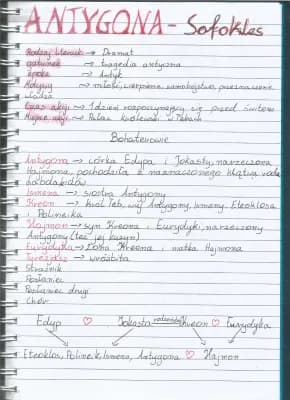 ANTYGONA - Sofokles
Rodzaj literacki → Dramat
gatunek → tragedia antyczna
epoka → Antyk
Motywy → miłości, cierpienia, samobójstwo, przeznaczenie
władza
Czas akcji → 1 dzień rozpoczynający się przed świtem
Miejsce akcji → Pałac królewski w Tebach
Bohaterowie
Antygona → córka Edypa i Jokasty, narzeczona
Hajmona, pochodziła z naznaczonego klątwą rodu
Labdakidów
Ismena → siostra Antygony
Kreon → Król Teb, wuj Antygony, Ismeny, Eteoklosa
i Polinejka
Hajmon → syn Kreona i Eurydyki, narzeczony
Antygony (też jej kuzyn)
Eurydyka → żona Kreona i matka Hajmona
Tyrezjasz → wróżbita
Strażnik
Posłaniec
Posłaniec drugi
Chór
Edyp ♡ Jokasta rodzeństwo Kreon ♡ Eurydyka
Eteoklos, Polinejk, Ismena, Antygona ♡ Hajmon